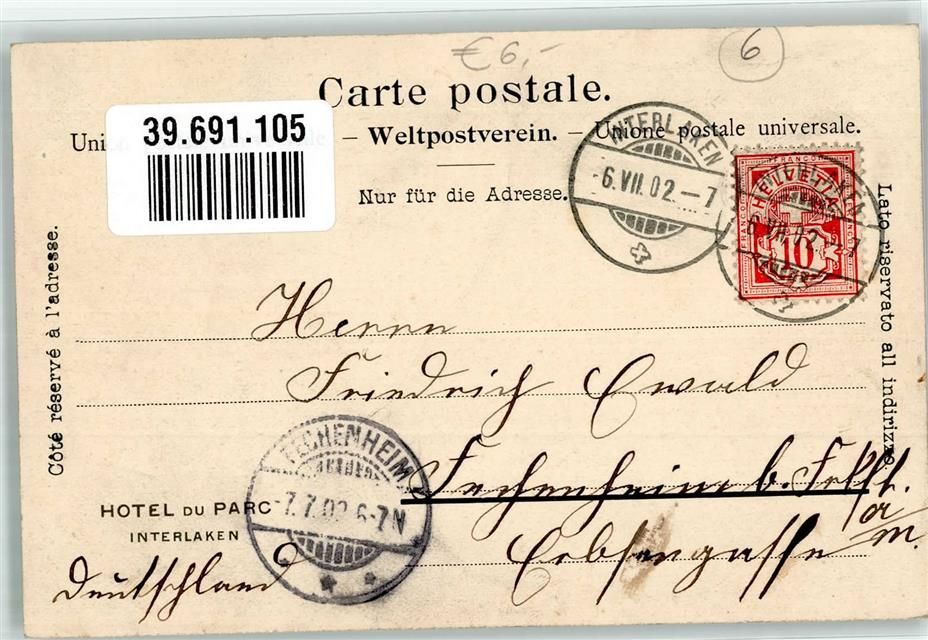 € 6,-
6
Carte postale.
39.691.105
Unio
— Weltpostverein. — Unione postale universale.
Nur für die Adresse.
INTERLAKEN
6.VII.02.—7
FRANCO
HELVETIA
10
Côté réservé à l'adresse.
Lato riservato all indirizzo
Herrn
Friedrich Ewald
Fechenheim b. Frkft.
a/m.
Erbsengasse 9
FECHENHEIM
7.7.02 6-7N
HOTEL DU PARC
INTERLAKEN
Deutschland